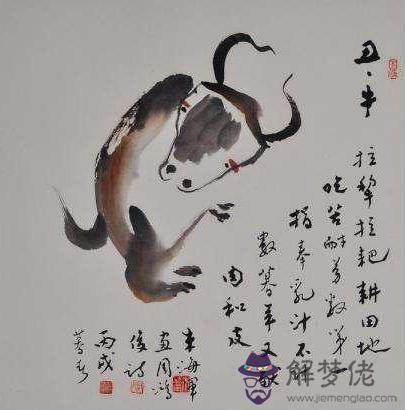 丑、牛
拉犁拉耙耕田地
吃苦耐劳数第一
奉乳汁不计
数暮年又献
肉和皮
朱海军
画周鸿
俊诗
丙戌
暮春
解梦佬
www.jiemenglao.com